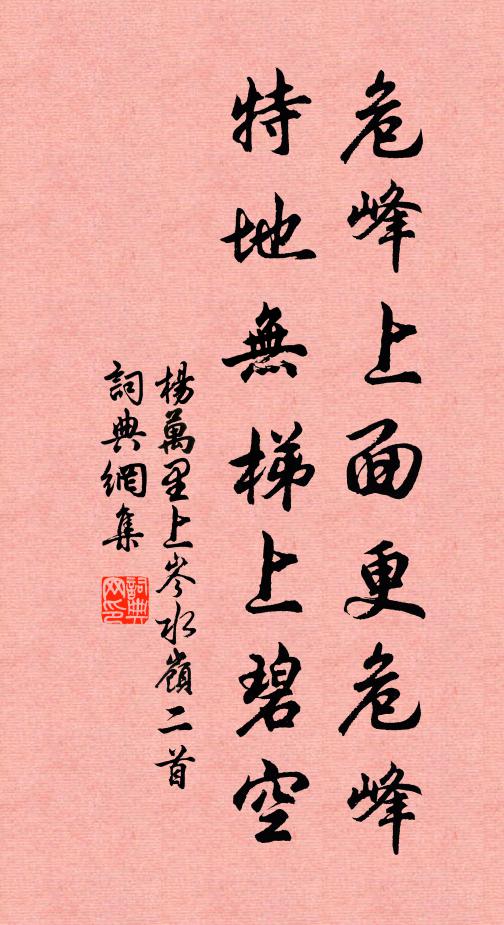 危峰上面更危峰
特地無梯上碧空
楊萬里上岑水嶺二首
詞典網集
詞典網印